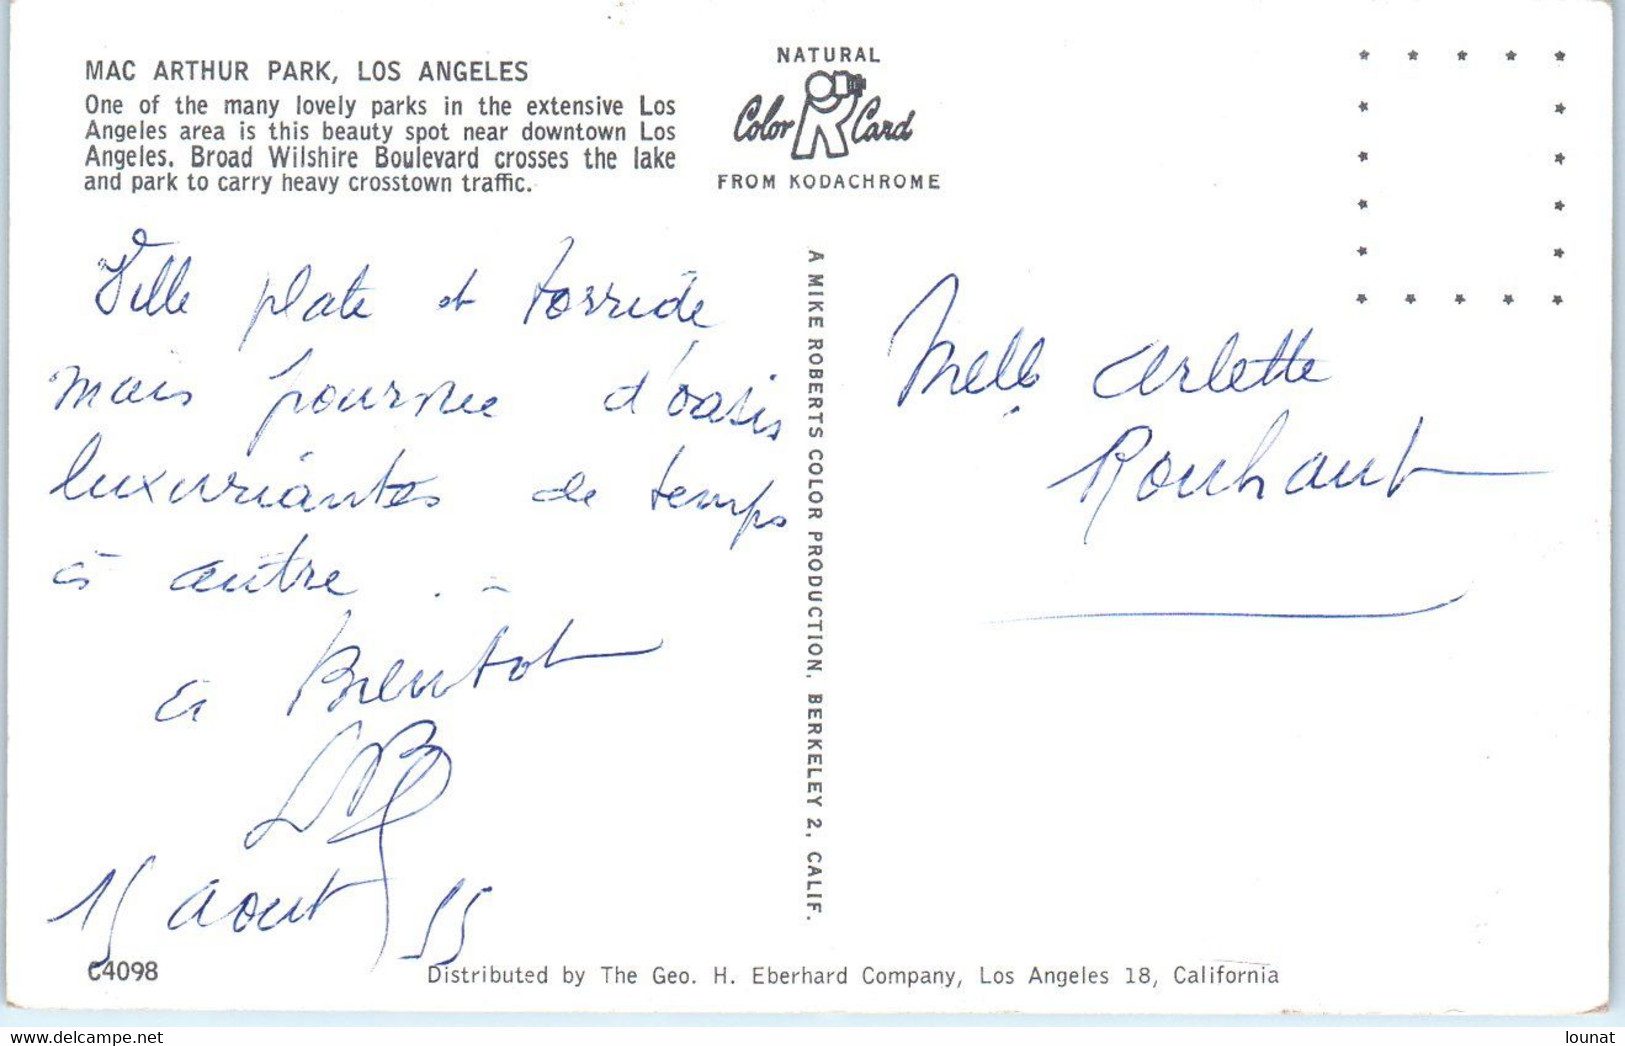 MAC ARTHUR PARK, LOS ANGELES
One of the many lovely parks in the extensive Los
Angeles area is this beauty spot near downtown Los
Angeles. Broad Wilshire Boulevard crosses the lake
and park to carry heavy crosstown traffic.
NATURAL
Color Card
FROM KODACHROME
Ville plate et torride
mais pourvue d'oasis
luxuriantes de temps
à autre . -
à Bientôt
15 aout 55
C4098
A MIKE ROBERTS COLOR PRODUCTION, BERKELEY 2, CALIF.
Melle Arlette
Rouhaut
Distributed by The Geo. H. Eberhard Company, Los Angeles 18, California
lounat